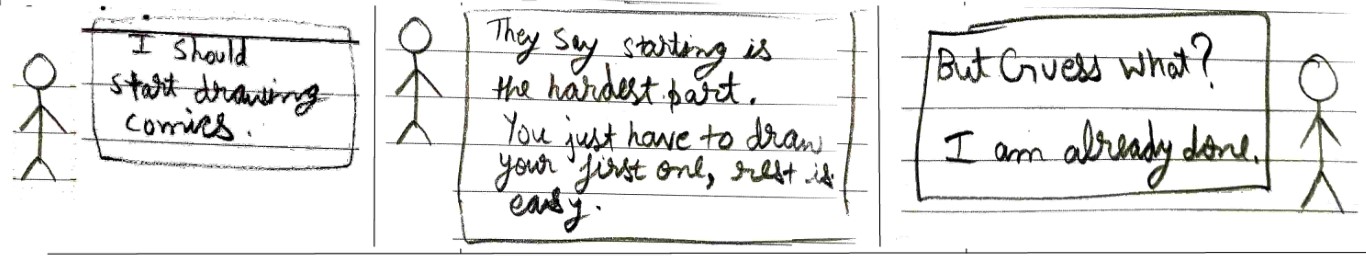 I should
start drawing
comics.
They say starting is
the hardest part.
You just have to draw
your first one, rest is
easy.
But Guess what?
I am already done.